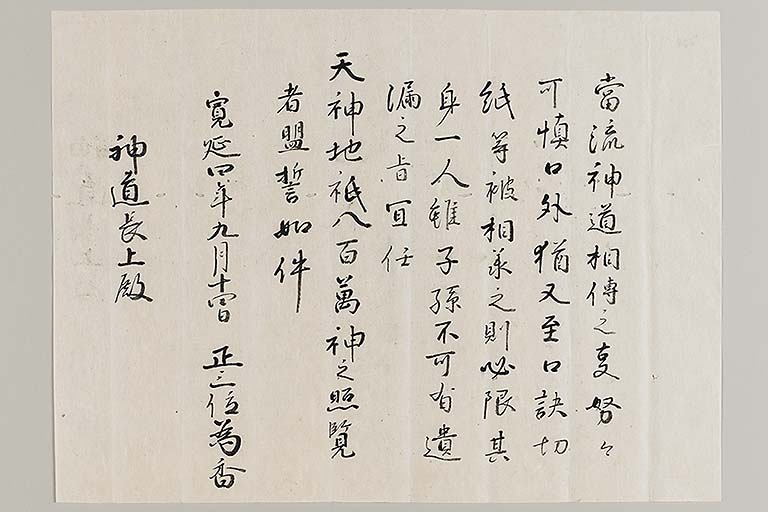 當流神道相傳之事努々
可慎口外猶又至口訣切
紙等被相承之則必限其
身一人雖子孫不可有遺
漏之旨宜任
天神地祇八百萬神之照覧
者盟誓如件
寛延四年九月十四日 正三位為香
神道長上殿